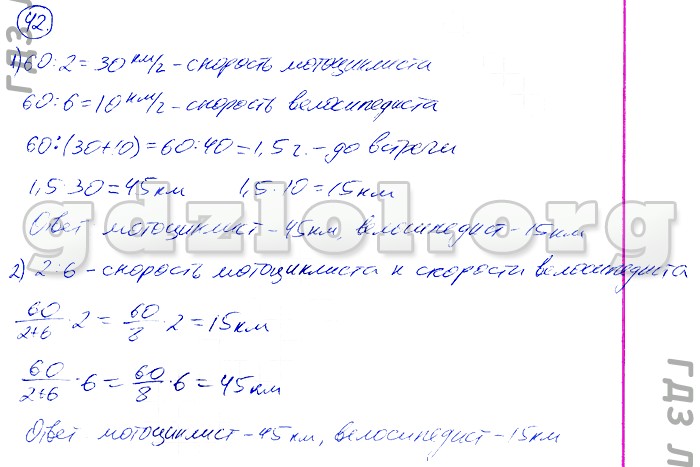 42.
1) 60:2=30 км/г - скорость мотоциклиста
60:6=10 км/г - скорость велосипедиста
60:(30+10)=60:40=1,5 г. - до встречи
1,5·30=45 км 1,5·10=15 км
Ответ мотоциклист - 45 км, велосипедист - 15 км
gdzlol.org
2) 2:6 - скорость мотоциклиста к скорости велосипедиста
60/2+6 · 2 = 60/8 · 2 = 15 км
60/2+6 · 6 = 60/8 · 6 = 45 км
Ответ мотоциклист - 45 км, велосипедист - 15 км
ГДЗ
ГДЗ Л